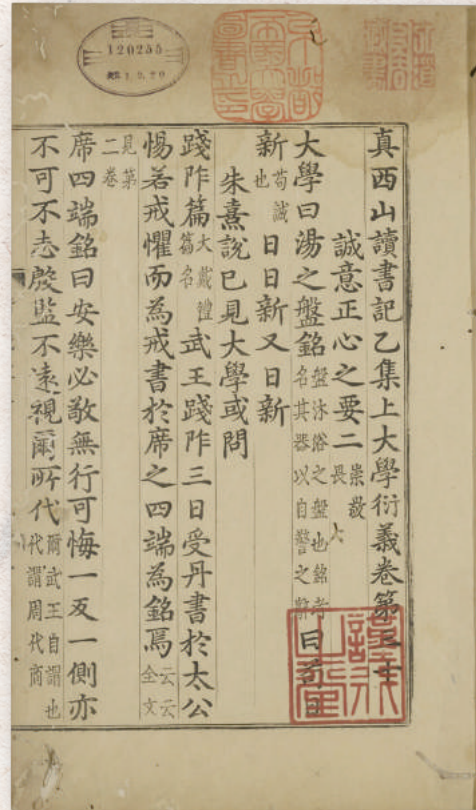 120255
1.9.20
真西山讀書記乙集上大學衍義卷第
誠意正心之要二 崇敬畏六
大學曰湯之盤銘 盤沐浴之盤也銘者名其器以自警之辭 曰苟日
新 苟誠也 日日新又日新
朱熹說已見大學或問
踐阼篇 大戴禮篇名 武王踐阼三日受丹書於太公
惕若戒懼而為戒書於席之四端為銘焉 云云全文
見第二卷
席四端銘曰安樂必敬無行可悔一反一側亦
不可不志殷監不遠視爾所代 爾武王自謂也代謂周代商